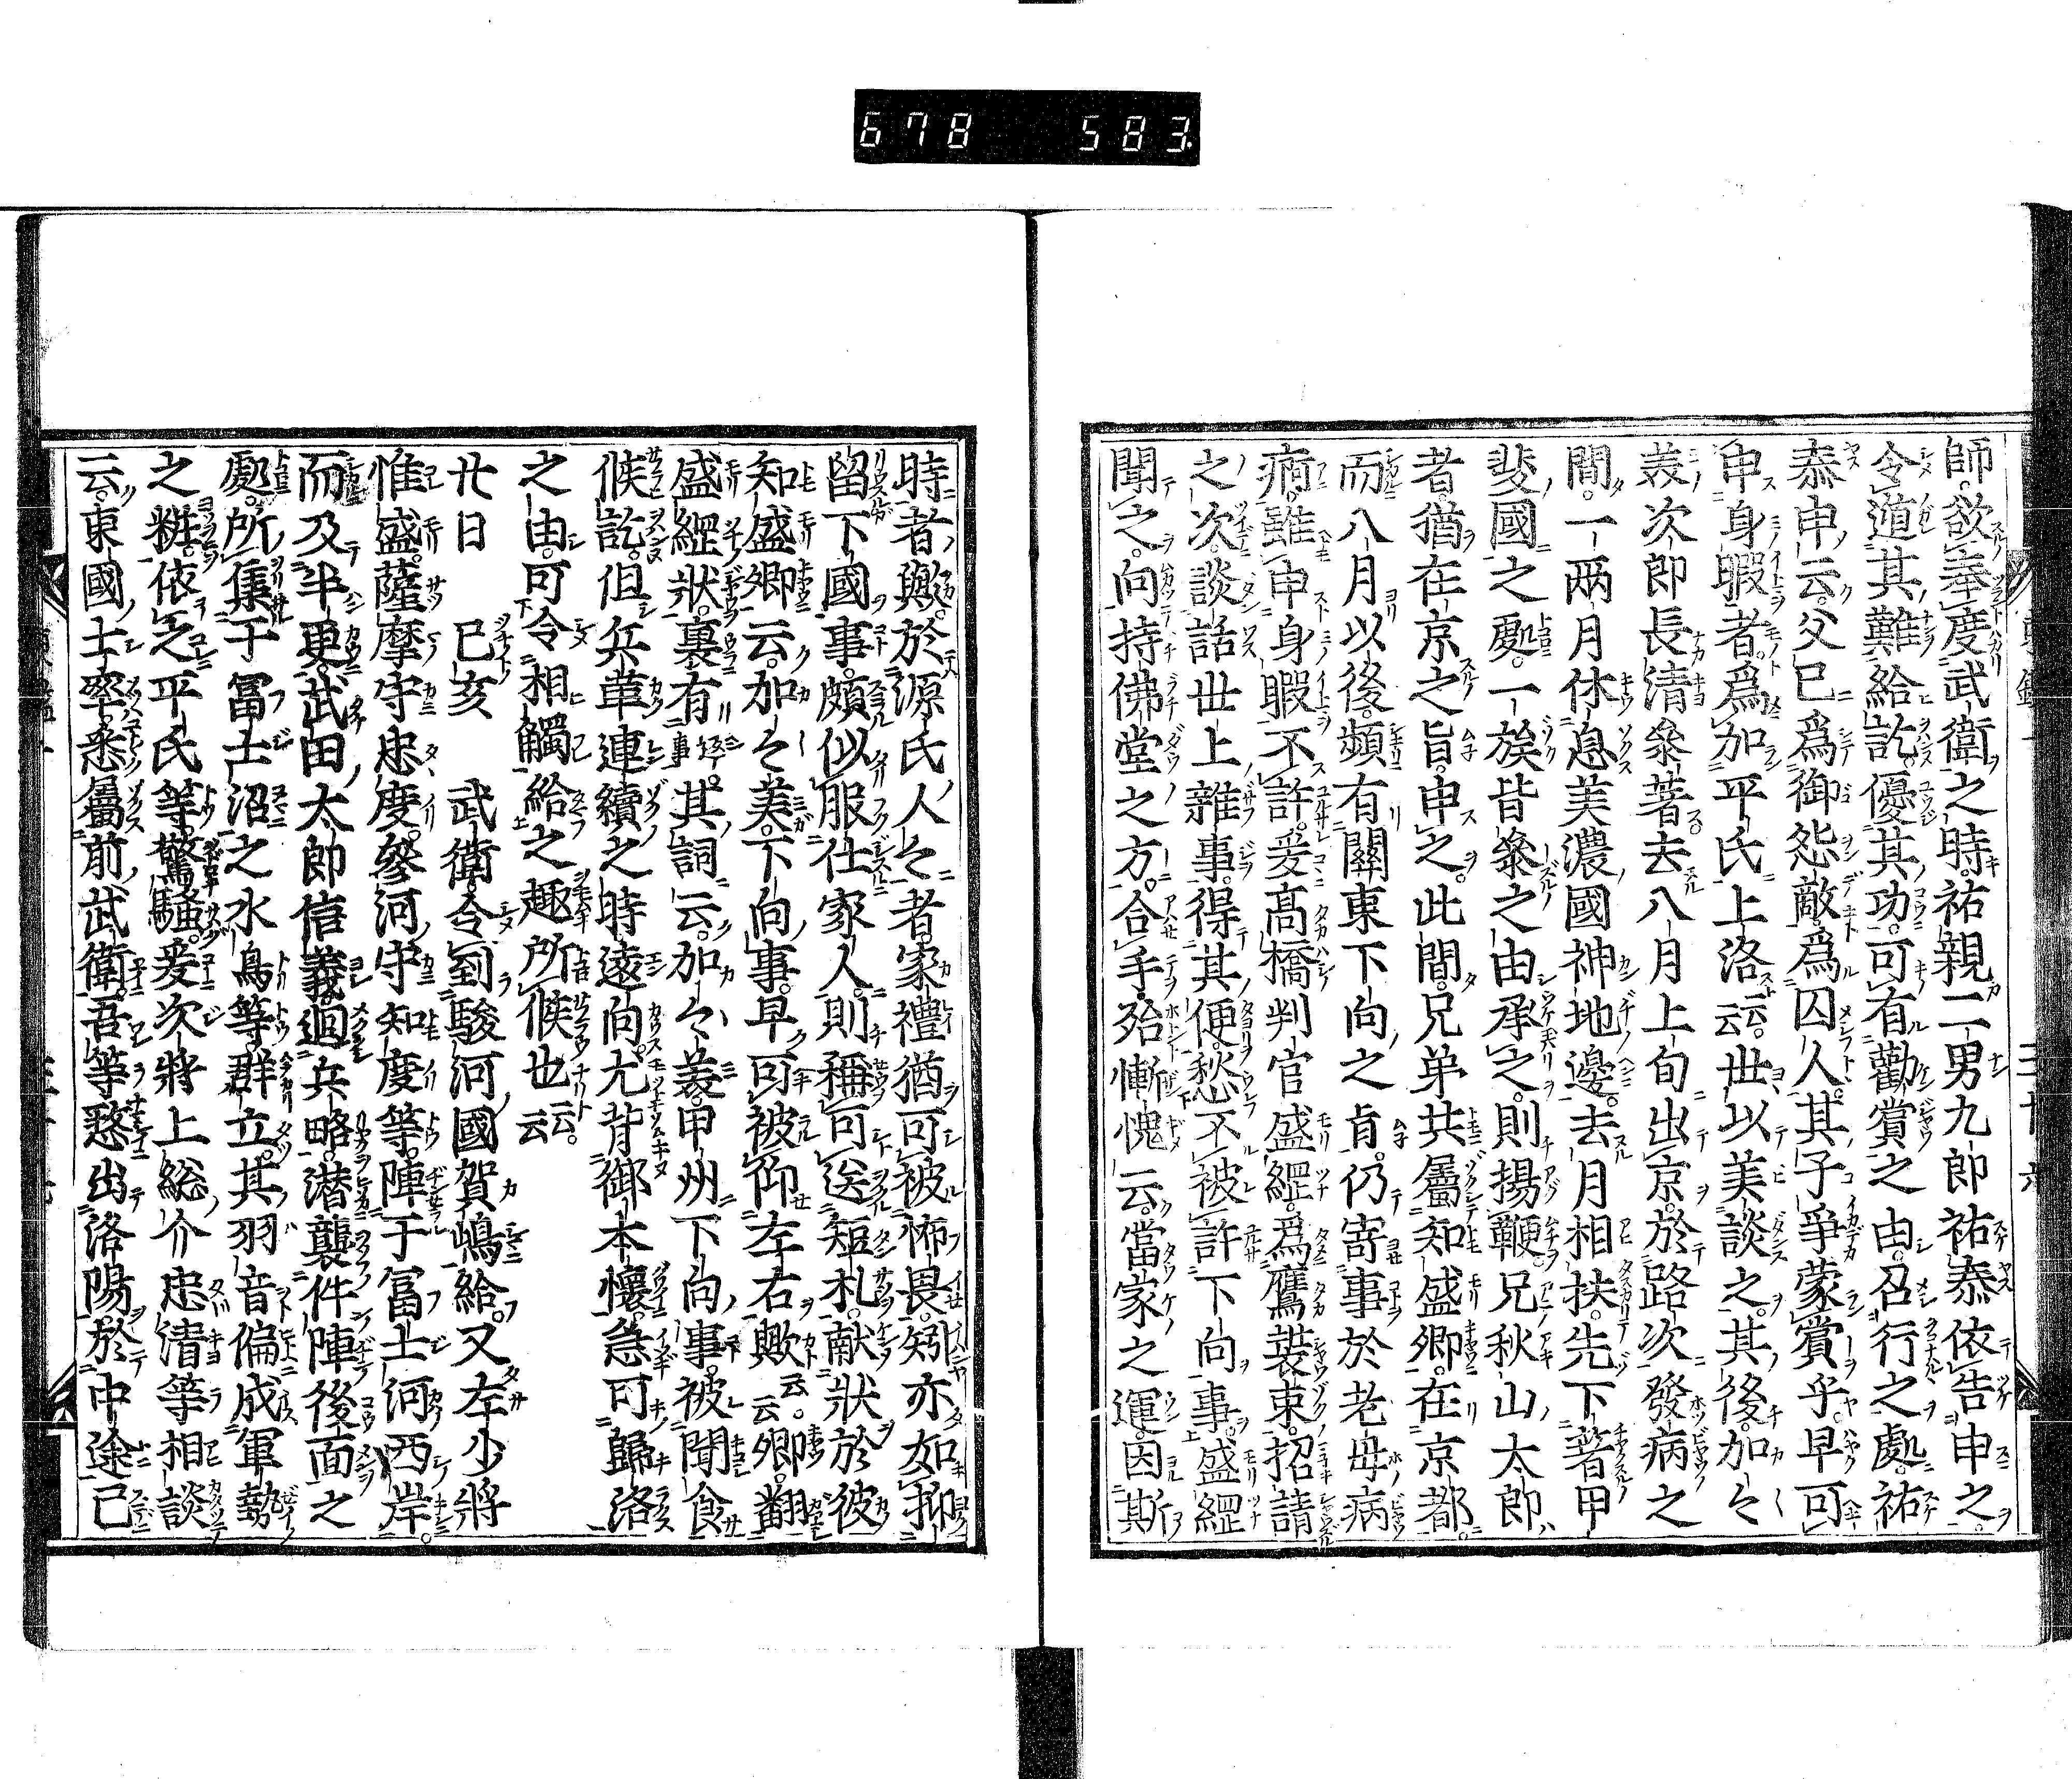 678 583
師。欲奉度武衛之時。祐親二男九郎祐泰依告申之。
令遁其難給訖。優其功。可有勸賞之由。召行之處。祐
泰申云。父已爲御怨敵爲囚人。其子爭蒙賞乎。早可
申身暇者。爲加平氏上洛云云。世以美談之。其後加々
美次郎長清參著。去八月上旬出京。於路次發病之
間。一兩月休息美濃國神地邊。去月相扶。先下著甲
斐國之處。一族皆參之由承之。則揚鞭。兄秋山太郎
者。猶在京之旨。申之。此間。兄弟共屬知盛卿。在京都。
而八月以後。頻有關東下向之志。仍寄事於老母病
痾。雖申身暇不許。爰高橋判官盛綱。爲鷹裝束。招請
之次。談話世上雜事。得其便。愁不被許下向事。盛綱
聞之。向持佛堂之方。合手。殆慚愧云。當家之運。因斯
時者歟。於源氏人々者。家禮猶可被怖畏。矧亦如抑
留下國事。頗似服仕家人。則稱可送短札。献狀於彼
知盛卿云。加々美。下向事。早可被仰左右歟云云。卿。翻
盛綱狀。裏有返事。其詞云。加々美。甲州下向事。被聞食
候訖。但兵革連續之時。遠向。尤背御本懷。急可歸洛
之由。可令相觸給之趣所候也云云。
廿日 己亥 武衛令到駿河國賀嶋給。又左少將
惟盛。薩摩守忠度。參河守知度等。陣于冨士河西岸。
而及半更。武田太郎信義。廻兵略。潜襲件陣後面之
處。所集于冨士沼之水鳥等。群立。其羽音偏成軍勢
之粧。依之平氏等。驚騷。爰次將上総介忠清等相談
云。東國士率。悉屬前武衛。吾等憖出洛陽。於中途已